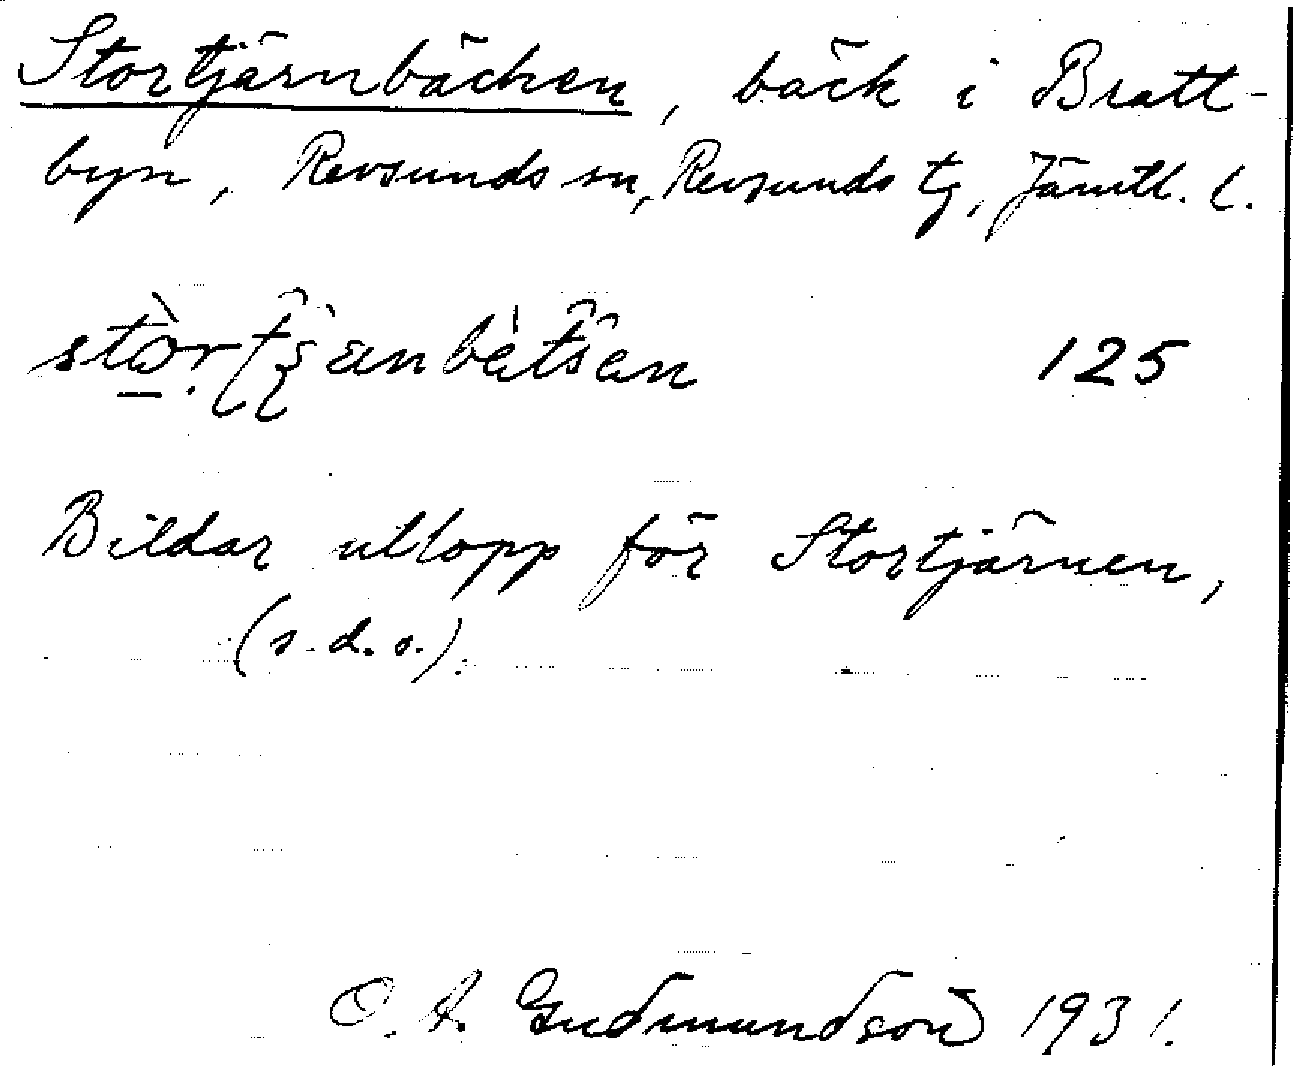 Stortjärnbäcken, bäck i Bratt-
byn, Revsunds sn, Revsunds tg, Jämtl. l.
125
Bildar utlopp för Stortjärnen,
(s.d.o.).
O. A. Gudmundson 1931.